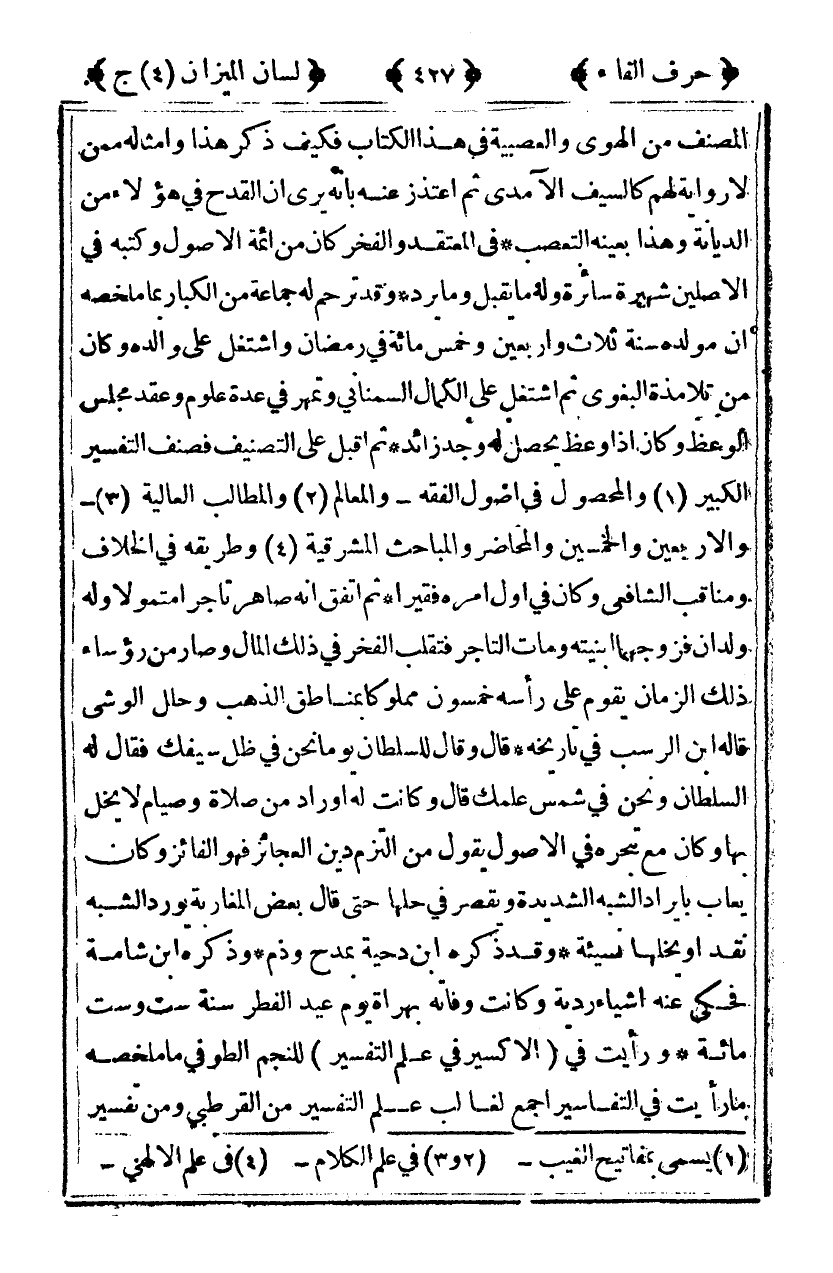 ﴿ حرف الفاء ﴾ ﴿ ٤٢٧ ﴾ ﴿ لسان الميزان (٤) ج ﴾
المصنف من الهوى والعصبية في هذا الكتاب فكيف ذكر هذا وامثاله ممن
لا رواية لهم كالسيف الآمدى ثم اعتذر عنه بأنه يرى ان القدح في هؤلاء من
الديانة وهذا بعينه التعصب * فى المعتقد والفخر كان من ائمة الاصول وكتبه في
الاصلين شهيرة سائرة وله ما يقبل وما يرد * وقد ترحم له جماعة من الكبار بما ملخصه
ان مولده سنة ثلاث واربعين وخمس مائة في رمضان واشتغل على والده وكان
من تلامذة البغوى ثم اشتغل على الكمال السمناني وتمهر في عدة علوم وعقد مجلس
الوعظ وكان اذا وعظ يحصل له وجد زائد * ثم اقبل على التصنيف فصنف التفسير
الكبير (١) والمحصول في اصول الفقه - والمعالم (٢) والمطالب العالية (٣) -
والاربعين والخمسين والمحاضر والمباحث المشرقية (٤) وطريقه في الخلاف
ومناقب الشافعى وكان في اول امره فقيرا * ثم اتفق انه صاهر تاجرا متمولا وله
ولدان فزوجهما ابنيته ومات التاجر فتقلب الفخر في ذلك المال وصار من رؤساء
ذلك الزمان يقوم على رأسه خمسون مملوكا بمناطق الذهب وحال الوشى
قاله ابن الرسب في تاريخه * قال وقال للسلطان يوما نحن في ظل سيفك فقال له
السلطان ونحن في شمس علمك قال وكانت له اوراد من صلاة وصيام لا يخل
بها وكان مع تبحره في الاصول يقول من التزم دين العجائز فهو الفائز وكان
يعاب بايراد الشبه الشديدة ويقصر في حلها حتى قال بعض المغاربة يورد الشبه
نقد اويحلها نسيئة * وقد ذكره ابن دحية بمدح وذم * وذكره ابن شامة
فحكي عنه اشياء ردية وكانت وفاته بهراة يوم عيد الفطر سنة ست وست
مائة * ورأيت في ( الاكسير في علم التفسير ) للنجم الطوفي ما ملخصه
ما رأيت في التفاسير اجمع لغالب علم التفسير من القرطبي ومن تفسير
(١) يسمى بمفاتيح الغيب - (٢ و٣) في علم الكلام - (٤) فى علم الالهي -